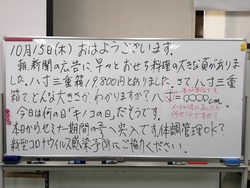 10月15日(木) おはようございます。
朝、新聞の広告に、早々とおせち料理の大きな頁がありまし
た。八寸三重箱19,800円とありました。さて八寸三重
箱て、どんな大きさかわかりますか？八寸=○○○○cm
今日は何の日「キノコの日」だそうです。
本日からセミナー期間の2号へ突入です。体調管理OKで
新型コロナウイルス感染予防にご協力ください。